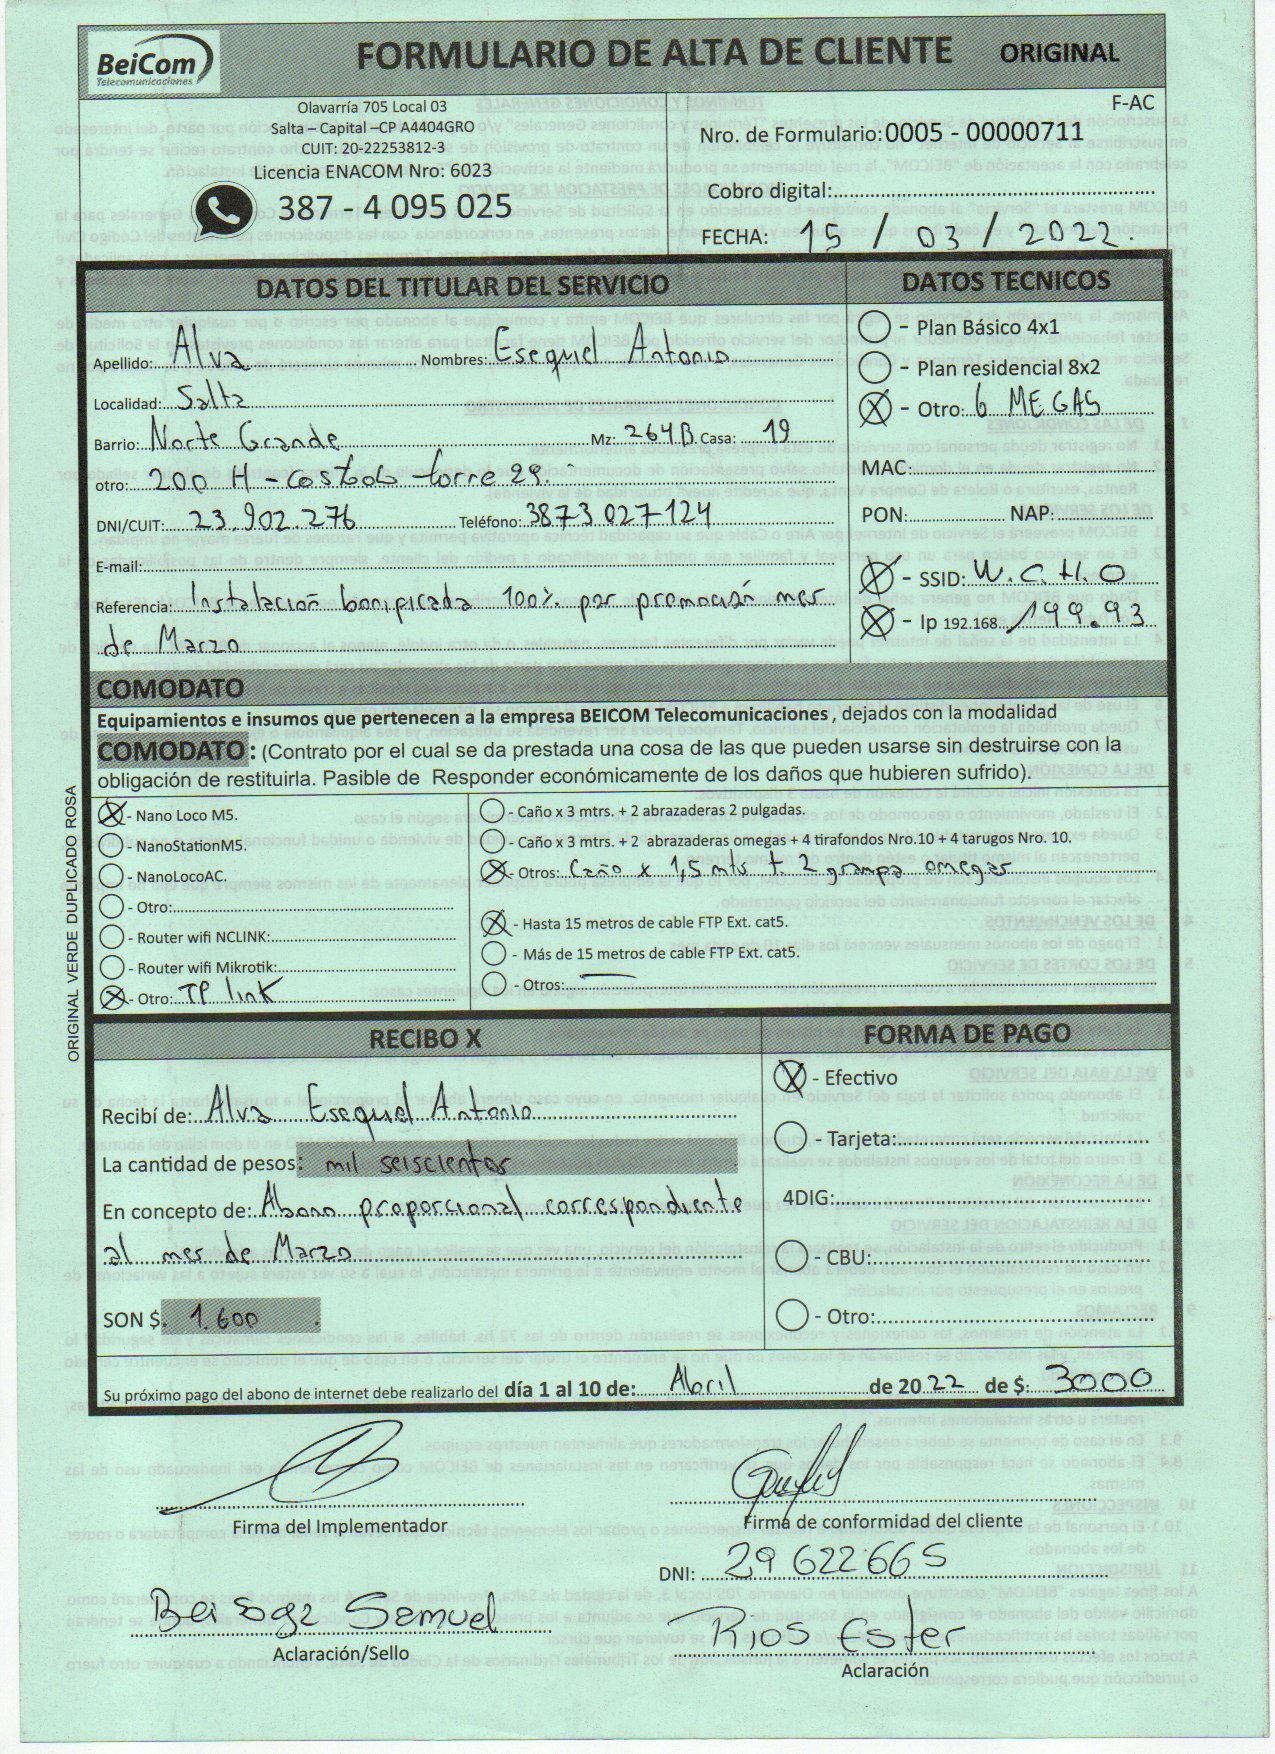 BeiCom
Telecomunicaciones
FORMULARIO DE ALTA DE CLIENTE ORIGINAL
Olavarría 705 Local 03
Salta – Capital –CP A4404GRO
CUIT: 20-22253812-3
Licencia ENACOM Nro: 6023
387 - 4 095 025
F-AC
Nro. de Formulario: 0005 - 00000711
Cobro digital:
FECHA: 15 / 03 / 2022.
DATOS DEL TITULAR DEL SERVICIO
Apellido: Alva Nombres: Esequiel Antonio
Localidad: Salta
Barrio: Norte Grande Mz: 264B Casa: 19
otro: 200 H - torre 29.
DNI/CUIT: 23.902.276 Teléfono: 3873027124
E-mail:
Referencia: Instalación bonificada 100% por promoción mes
de Marzo
DATOS TECNICOS
- Plan Básico 4x1
- Plan residencial 8x2
- Otro: 6 MEGAS
MAC:
PON: NAP:
- SSID: W.C.H.O
- Ip 192.168. 199.93
COMODATO
Equipamientos e insumos que pertenecen a la empresa BEICOM Telecomunicaciones, dejados con la modalidad
COMODATO: (Contrato por el cual se da prestada una cosa de las que pueden usarse sin destruirse con la
obligación de restituirla. Pasible de Responder económicamente de los daños que hubieren sufrido).
ORIGINAL VERDE DUPLICADO ROSA
- Nano Loco M5.
- NanoStationM5.
- NanoLocoAC.
- Otro:
- Router wifi NCLINK:
- Router wifi Mikrotik:
- Otro: TP link
- Caño x 3 mtrs. + 2 abrazaderas 2 pulgadas.
- Caño x 3 mtrs. + 2 abrazaderas omegas + 4 tirafondos Nro.10 + 4 tarugos Nro. 10.
- Otros: Caño x 1,5 mts + 2 grampa omegas
- Hasta 15 metros de cable FTP Ext. cat5.
- Más de 15 metros de cable FTP Ext. cat5.
- Otros:
RECIBO X
Recibí de: Alva Esequiel Antonio
La cantidad de pesos: mil seiscientos
En concepto de: Abono proporcional correspondiente
al mes de Marzo
SON $. 1.600
FORMA DE PAGO
- Efectivo
- Tarjeta:
4DIG:
- CBU:
- Otro:
Su próximo pago del abono de internet debe realizarlo del día 1 al 10 de: Abril de 2022 de $: 3000
Firma del Implementador
Firma de conformidad del cliente
DNI: 29622665
Samuel
Aclaración/Sello
Rios Ester
Aclaración